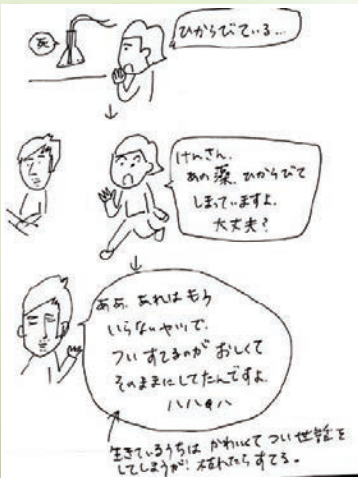 死
ひからびている…
けんさん、
あの薬、ひからびて
しまっていますよ。
大丈夫?
ああ、あれはもう
いらないヤツで、
ついすてるのがおしくて
そのままにしてたんですよ。
ハハハ
生きているうちは かわいくてつい世話を
してしまうが、枯れたらすてる。